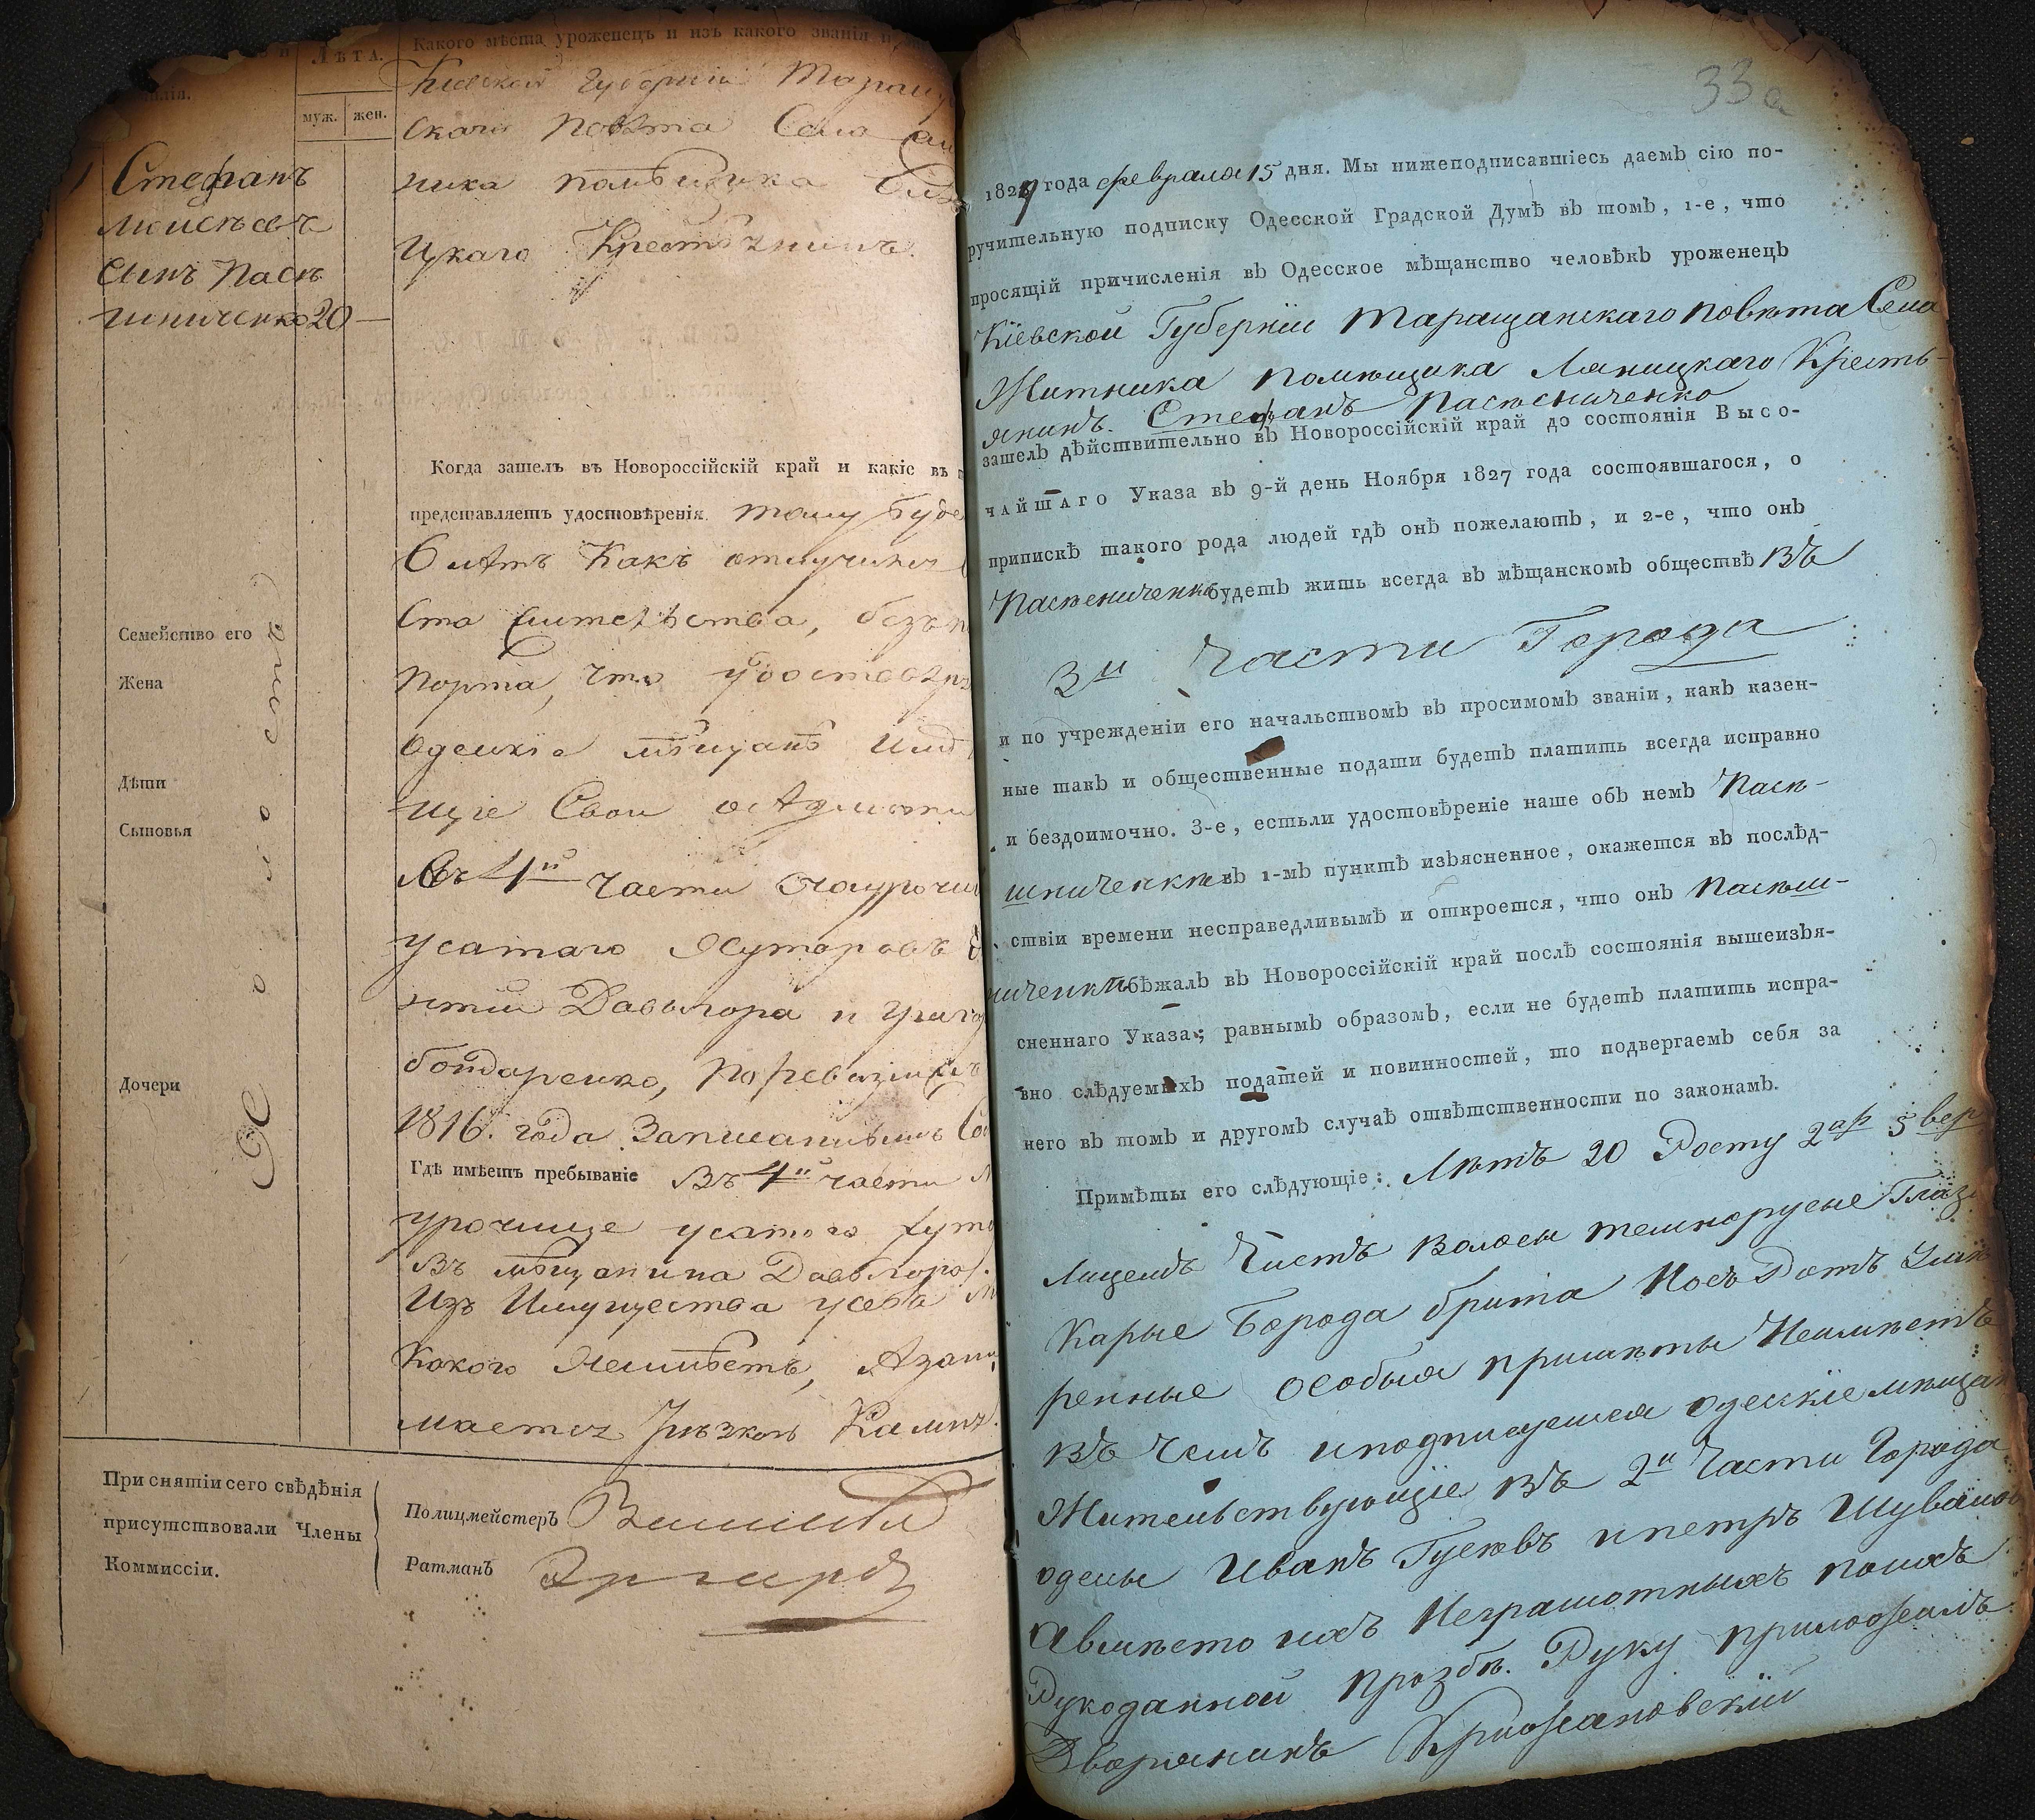 Лѣта.
Какого мѣста уроженецъ и изъ какого званія
муж. жен.
Кіевской Губерніи Таращ
скаго повѣта Села
ника помѣщика
цкаго Крестьянинъ.
Стефанъ
Моисѣевъ
сынъ Пасѣ
шниченко 20 —
Когда зашелъ въ Новороссійскій край и какіе въ
представляетъ удостовѣренія. тому буде
6 лѣтъ Какъ отлучился
ста жительства, безъ
порта, что удостовѣр
Одескіе мѣщанѣ имѣ
щіе Свои осѣдлости
въ 4й части
усатаго Хуторовъ
и Григо
бондаренко, по ревизіи
1816. года Записанныи
Семейство его
Жена
Дѣти
Сыновья
Дочери
Холостъ
Гдѣ имѣетъ пребываніе въ 4й части
урочище усатого хуто
въ мѣщанина
Изъ Имущества усебя
Какого Неимѣетъ, Азани
мается рѣзкою Камня.
При снятіи сего свѣдѣнія
присутствовали Члены
Коммиссіи.
Полицмейстеръ
Ратманъ
33
182 года февраля 15 дня. Мы нижеподписавшіесь даемъ сію по-
ручительную подписку Одесской Градской Думѣ въ томъ, 1-е, что
просящій причисленія въ Одесское мѣщанство человѣкъ уроженецъ
Кіевской Губерніи Таращанскаго повѣта Села
Житника помѣщика Ляницкаго Кресть-
янинъ. Стефанъ Пасѣшниченко
зашелъ дѣйствительно въ Новороссійскій край до состоянія Высо-
чайшаго Указа въ 9-й день Ноября 1827 года состоявшагося, о
припискѣ такого рода людей гдѣ онѣ пожелаютъ, и 2-е, что онъ
Пасѣшниченко будетъ жить всегда въ мѣщанскомъ обществѣ Въ
3й Части Города
и по учрежденіи его начальствомъ въ просимомъ званіи, какъ казен-
ные такъ и общественные подати будетъ платить всегда исправно
и бездоимочно. 3-е, естьли удостовѣреніе наше объ немъ Пасѣ-
шниченкѣ въ 1-мъ пунктѣ изъясненное, окажется въ послѣд-
ствіи времени несправедливымъ и откроется, что онъ Пасѣш-
ниченко бѣжалъ въ Новороссійскій край послѣ состоянія вышеизъя-
сненнаго Указа; равнымъ образомъ, если не будетъ платить испра-
вно слѣдуемыхъ податей и повинностей, то подвергаемъ себя за
него въ томъ и другомъ случаѣ отвѣтственности по законамъ.
Примѣты его слѣдующіе: Лѣтъ 20 Росту 2 ар 5 вер
Лицемъ Чистъ Волосы темнорусые Глаза
Карые Борода брита Носъ Ротъ Умѣ
ренные Особыя примѣты Неимѣетъ
Въ Чемъ и подписуемся Одескіе мѣщан
Жительствующіе Въ 2й Части Города
Одесы Иванъ Гусевъ и петръ Шуваловъ
Авмѣсто ихъ Неграмотныхъ поихъ
Рукоданной прозбѣ. Руку приложилъ
Дворянинъ Крижановскій